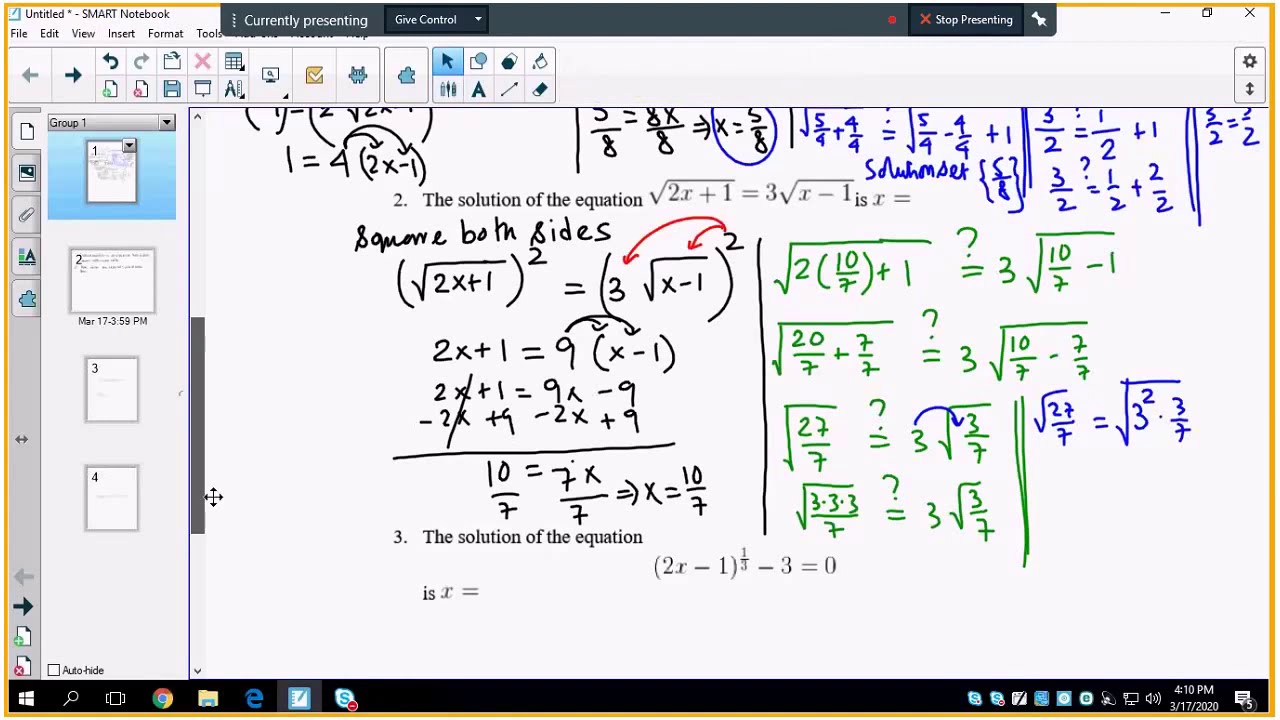 Untitled * - SMART Notebook
Currently presenting
Give Control
Stop Presenting
File Edit View Insert Format Tools
Group 1
1
2
Mar 17-3:59 PM
3
4
Auto-hide
1 = 4 (2x-1)
5/8 = 8x/8 ⇒ x = 5/8
√(5/4 + 4/4) ?= √(5/4 - 4/4) + 1
Solution set {5/8}
3/2 ?= 1/2 + 1
3/2 ?= 1/2 + 2/2
3/2 = 3/2
2. The solution of the equation √(2x + 1) = 3√(x − 1) is x =
Square both sides
(√(2x+1))² = (3 √(x-1))²
2x+1 = 9 (x-1)
2x +1 = 9x -9
-2x +9 -2x +9
10/7 = 7x/7 ⇒ x = 10/7
√(2(10/7)+1) ?= 3 √(10/7 - 1)
√(20/7 + 7/7) ?= 3 √(10/7 - 7/7)
√(27/7) ?= 3 √(3/7)
√(3·3·3/7) ?= 3 √(3/7)
√(27/7) = √(3² · 3/7)
3. The solution of the equation
(2x − 1)^(1/3) − 3 = 0
is x =
4:10 PM
3/17/2020
5